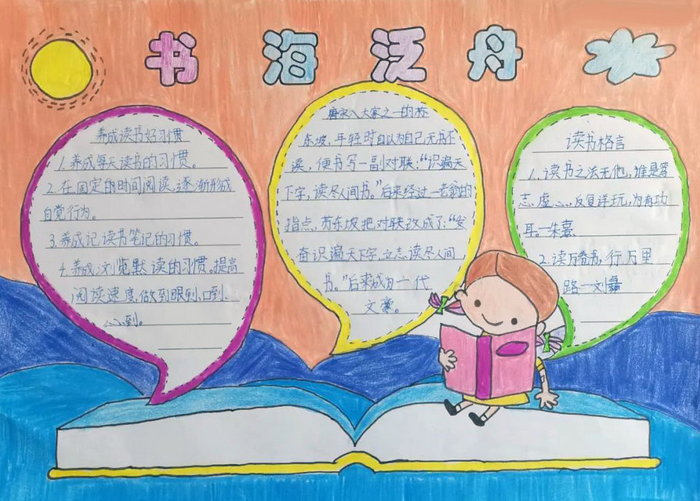 书海泛舟
养成读书好习惯
1.养成每天读书的习惯。
2.在固定的时间阅读,逐渐形成
自觉行为。
3.养成记读书笔记的习惯。
4.养成浏览默读的习惯,提高
阅读速度,做到眼到、口到、
心到。
唐宋八大家之一的称
东坡,年轻时自以为自己无书不
读,便书写一副对联:“识遍天
下字,读尽人间书。”后来经过一老翁的
指点,苏东坡把对联改成了:“发
奋识遍天下字,立志读尽人间
书。”后来成为一代
文豪。
读书格言
1.读书之法无他,惟是笃
志虚心,反复详玩,为有功
耳。—朱熹
2.读万卷书,行万里
路—刘彝